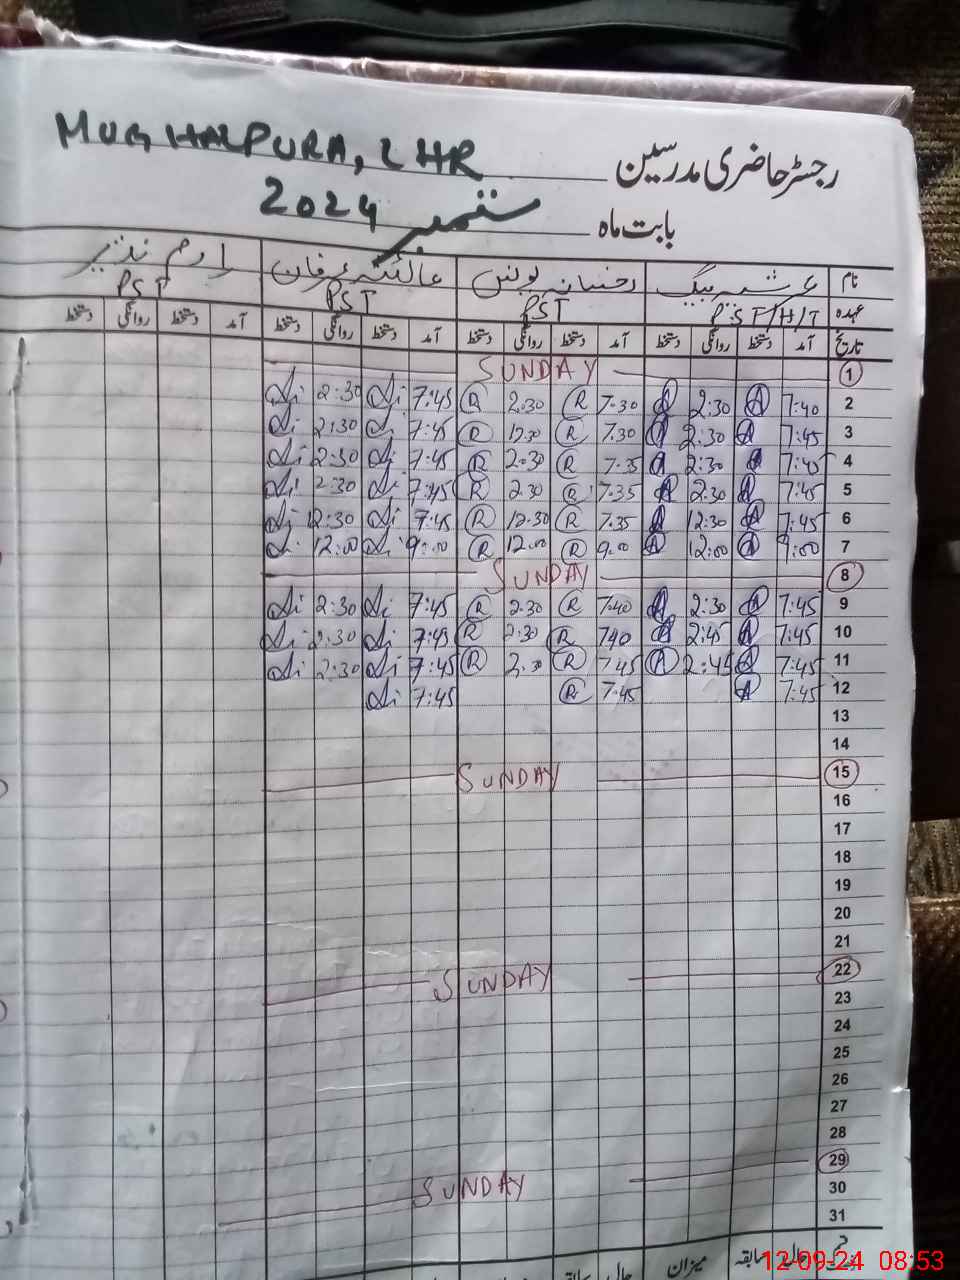 MUGHALPURA, LHR رجسٹر حاضری مدرسین
2024 ستمبر بابت ماہ
نام عرشیہ بیگ رخسانہ یونس عائشہ عرفان ارم نذیر
عہدہ PST/H/T PST PST PST
تاریخ آمد دستخط روانگی دستخط آمد دستخط روانگی دستخط آمد دستخط روانگی دستخط آمد دستخط روانگی دستخط
1 SUNDAY
2 7:40 A 2:30 A 7.30 R 2.30 R 7:45 Ai 2:30 Ai
3 7:45 A 2:30 A 7.30 R 12.30 R 7:45 Ai 2:30 Ai
4 7:45 A 2:30 A 7.35 R 2.30 R 7:45 Ai 2:30 Ai
5 7:45 A 2:30 A 7.35 R 2.30 R 7:45 Ai 2:30 Ai
6 7:45 A 12:30 A 7.35 R 12.30 R 7:45 Ai 12:30 Ai
7 9:00 A 12:00 A 9.00 R 12.00 R 9:00 Ai 12:00 Ai
8 SUNDAY
9 7:45 A 2:30 A 7.40 R 2.30 R 7:45 Ai 2:30 Ai
10 7:45 A 2:45 A 740 R 2:30 R 7:45 Ai 2:30 Ai
11 7:45 A 2:45 A 7.45 R 2.30 R 7:45 Ai 2:30 Ai
12 7:45 A 7.45 R 7:45 Ai
13
14
15 SUNDAY
16
17
18
19
20
21
22 SUNDAY
23
24
25
26
27
28
29 SUNDAY
30
31
حال سابقہ میزان حال
12-09-24 08:53